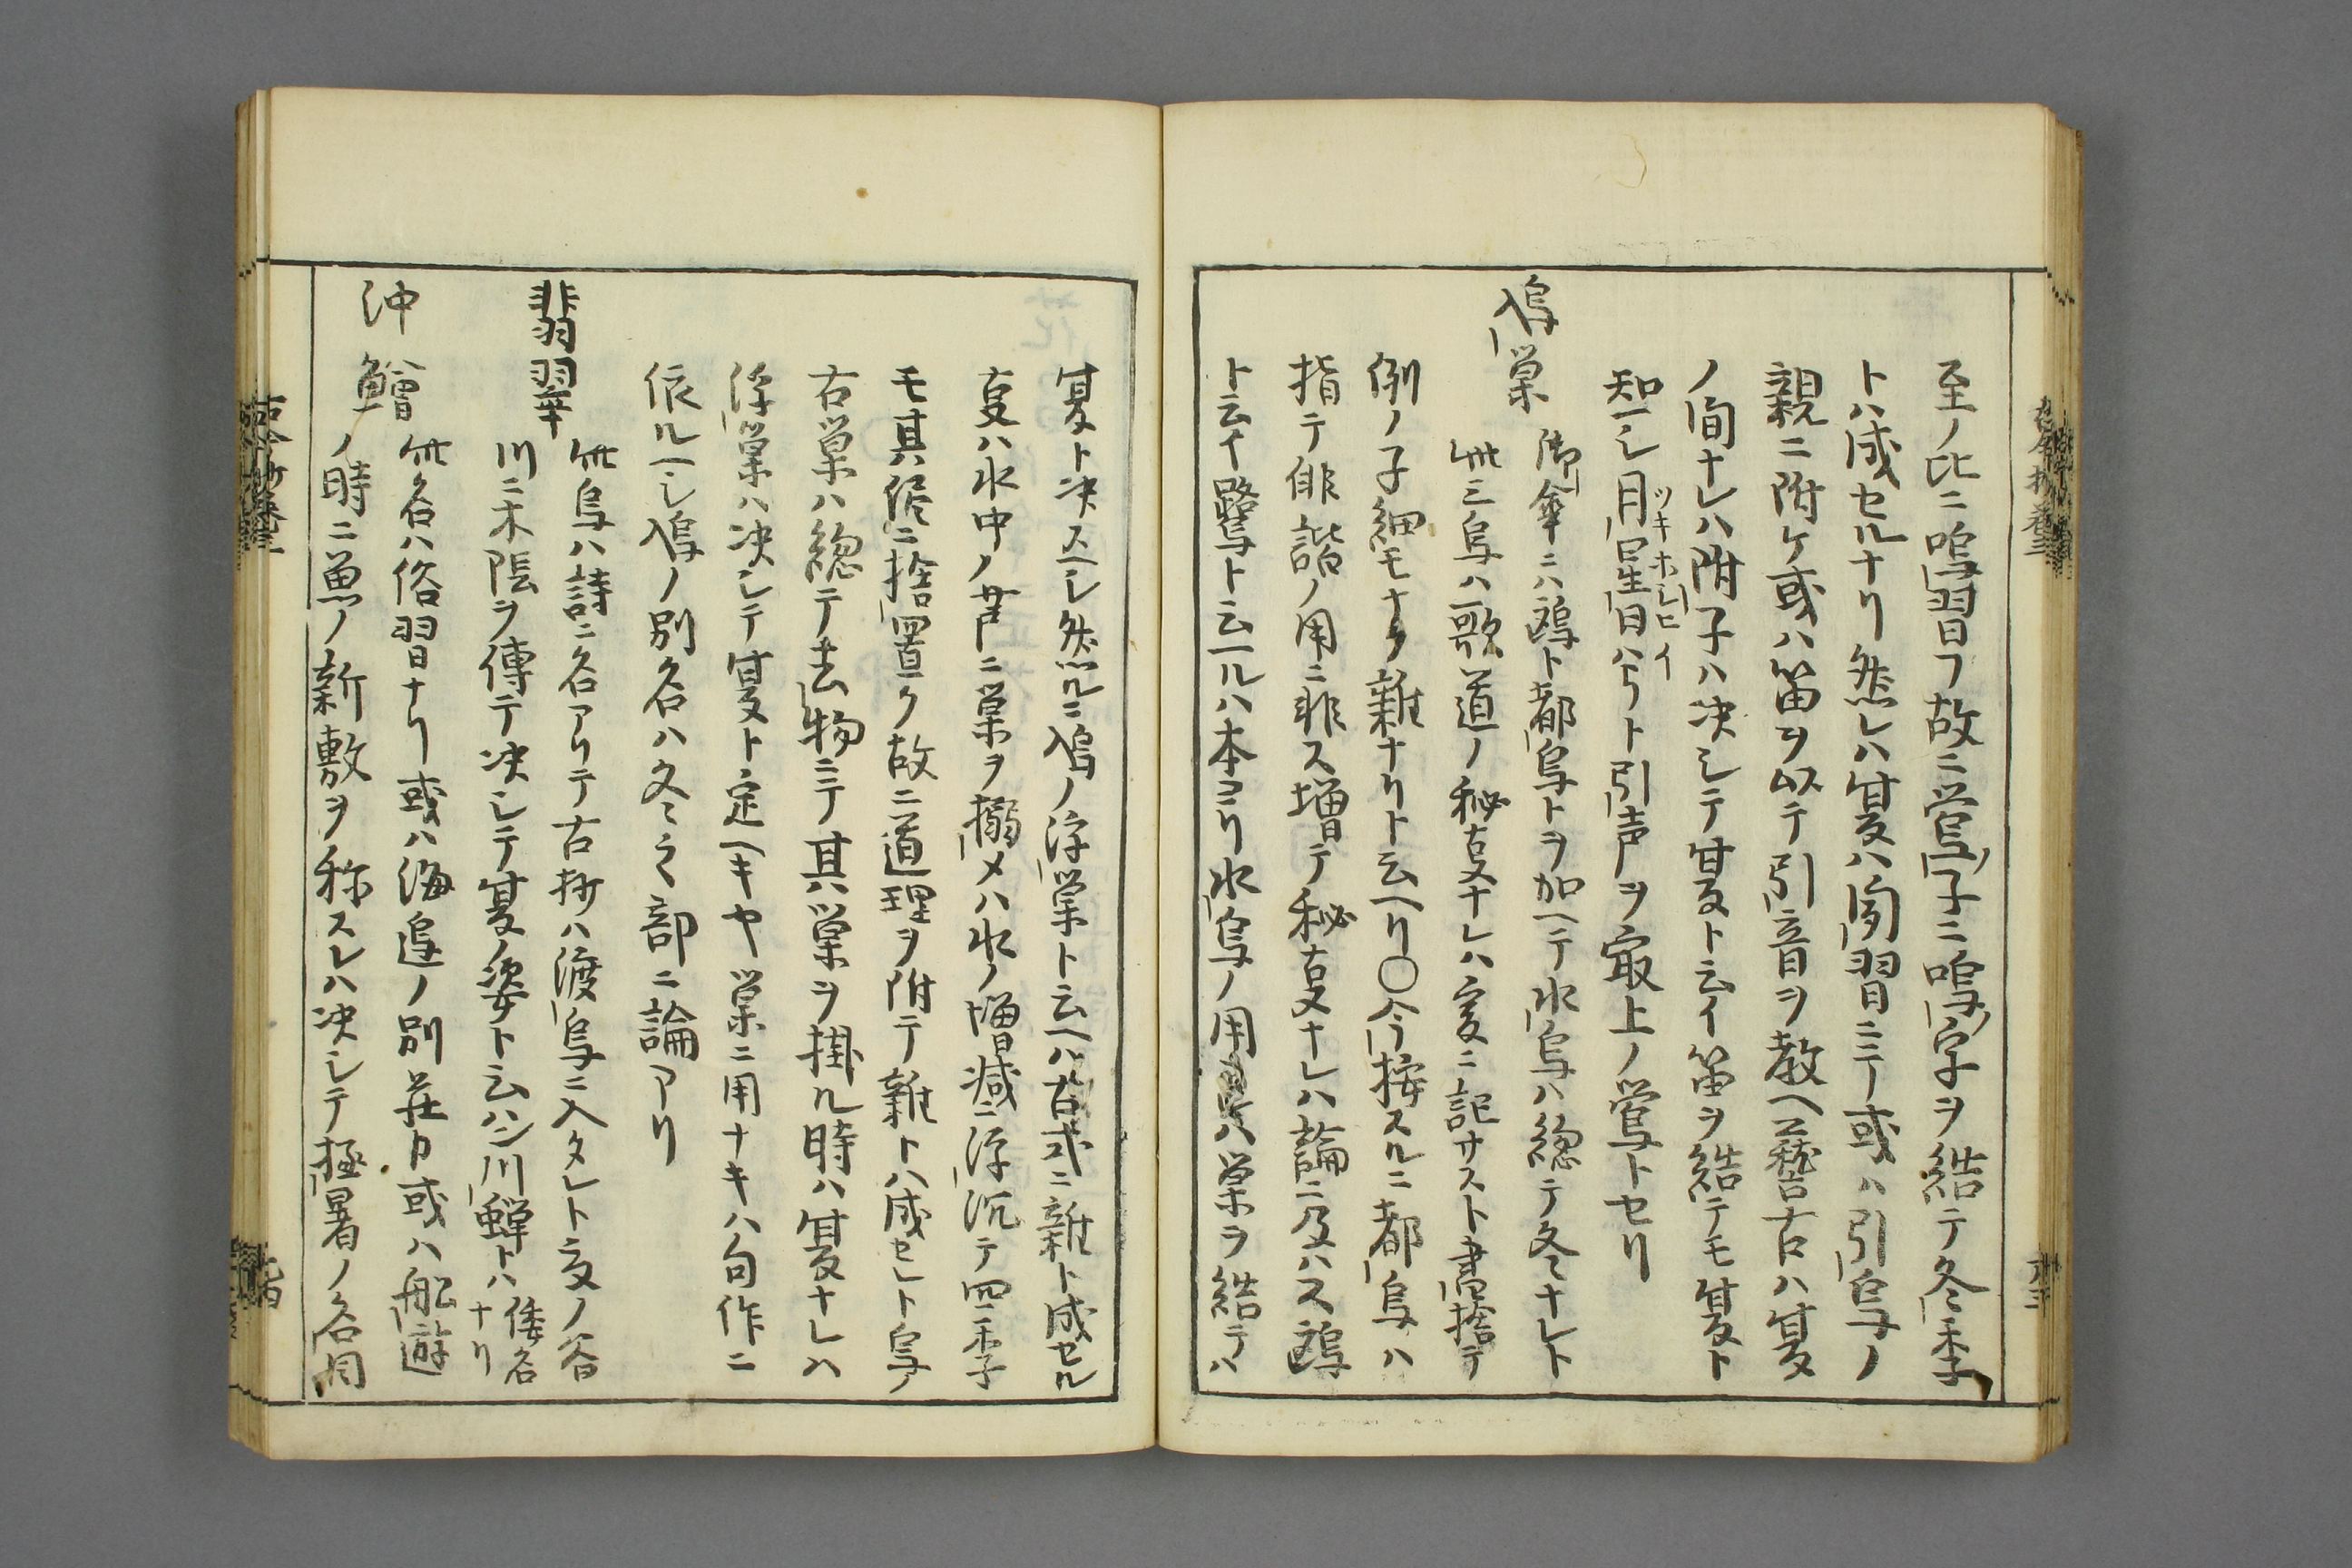 至ノ比ニ鳴習フ故ニ鶯子ニ鳴字ヲ結テ冬季
トハ成セルナリ然レハ夏ハ閑習ニテ或ハ引鳥ノ
親ニ附ケ或ハ笛ヲ以テ引音ヲ教ヘ稽古ハ夏
ノ間ナレハ附子ハ决シテ夏ト云イ笛ヲ結テモ夏ト
知ヘシ月星日ハト引声ヲ最上ノ鶯トセリ
ツキホシヒイ
鳰巣 御傘ニハ鴎ト都鳥トヲ加ヘテ水鳥ハ総テ冬ナレト
此三鳥ハ歌道ノ秘事ナレハ爰ニ記サスト書捨テ
例ノ子細モナク雑ナリト云ヘリ〇今按スルニ都鳥ハ
指テ俳諧ノ用ニ非ス増テ秘事ナレハ論ニ及ハス鴎
ト云イ鷺ト云ルハ本ヨリ水鳥ノ用ナレハ巣ヲ結テハ
夏ト决スヘシ然ルニ鳰ノ浮巣ト云ヘハ古式ニ雑ト成セル
事ハ水中ノ芦ニ巣ヲ搦メハ水ノ増减ニ浮沉テ四季
モ其侭ニ捨置ク故ニ道理ヲ附テ雑トハ成セレト鳥ノ
古巣ハ総テ去物ニテ其巣ヲ掛ル時ハ夏ナレハ
浮巣ハ决シテ夏ト定ヘキヤ巣ニ用ナキハ句作ニ
依ルヘシ鳰ノ別名ハ冬之部ニ論アリ
翡翠 此鳥ハ詩ニ名アリテ古抄ハ渡鳥ニ入タレト夏ノ谷
川ニ木陰ヲ傳テ决シテ夏ノ姿ト云ハン川蝉トハ倭名ナリ
沖鱠 此名ハ俗習ナリ或ハ海邉ノ別荘カ或ハ船遊
ノ時ニ魚ノ新敷ヲ称スレハ决シテ極暑ノ名目